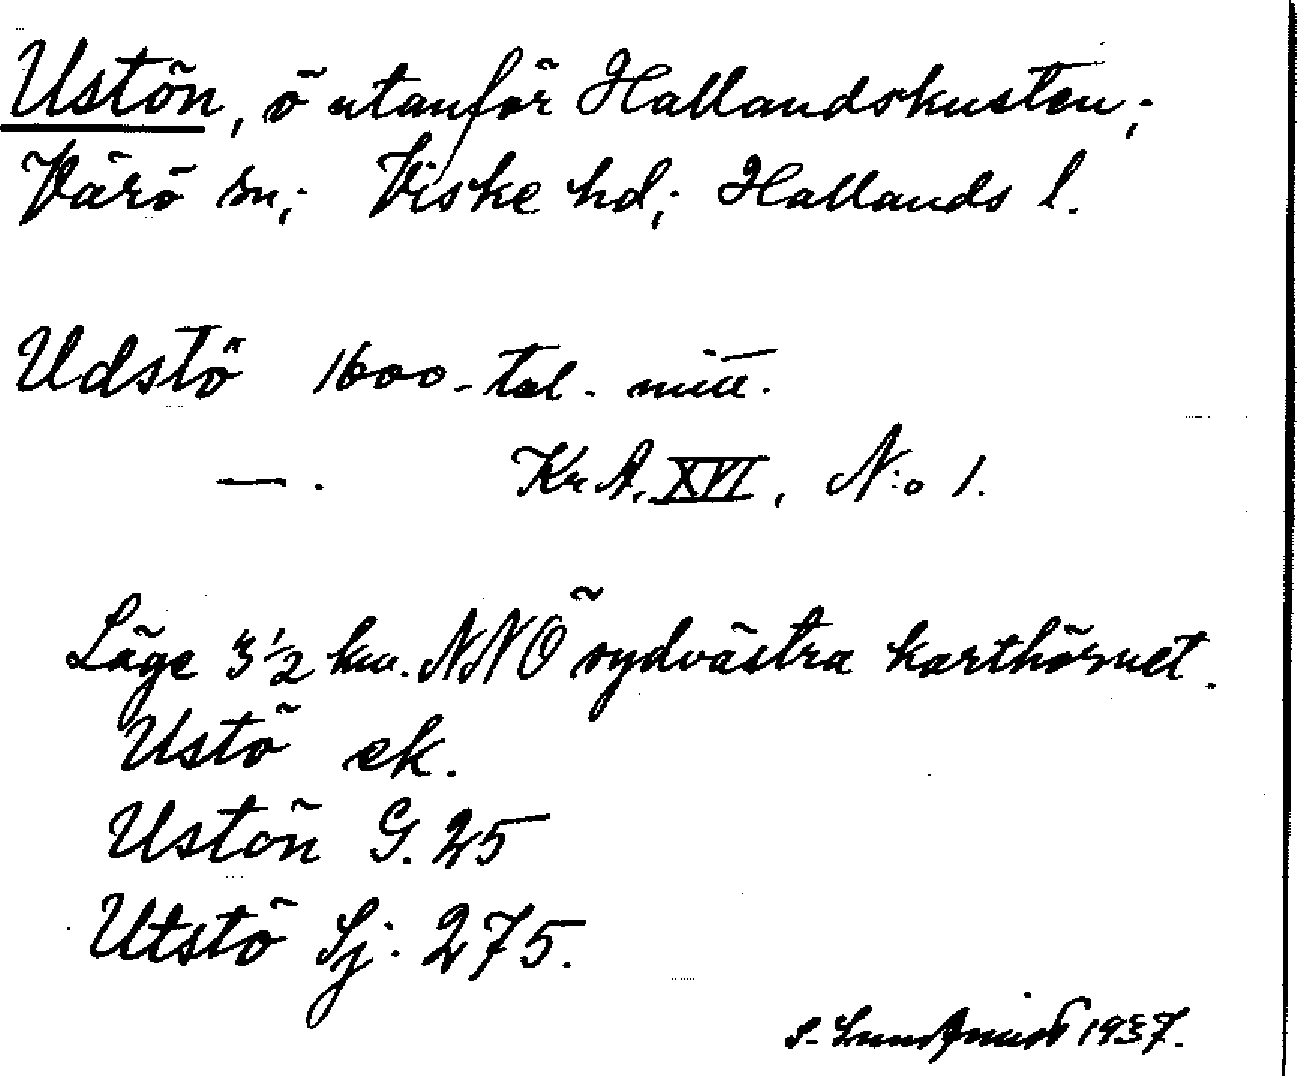 Ustön, ö utanför Hallandskusten;
Värö sn; Viske hd; Hallands l.
Udstö 1600-tal. mitt.
—. Kr.A. XVI, N:o 1.
Läge 3 1/2 km. NNÖ sydvästra karthörnet.
Ustö ek.
Ustön G. 25
Utstö Sj. 275.
S. Lundquist 1937.